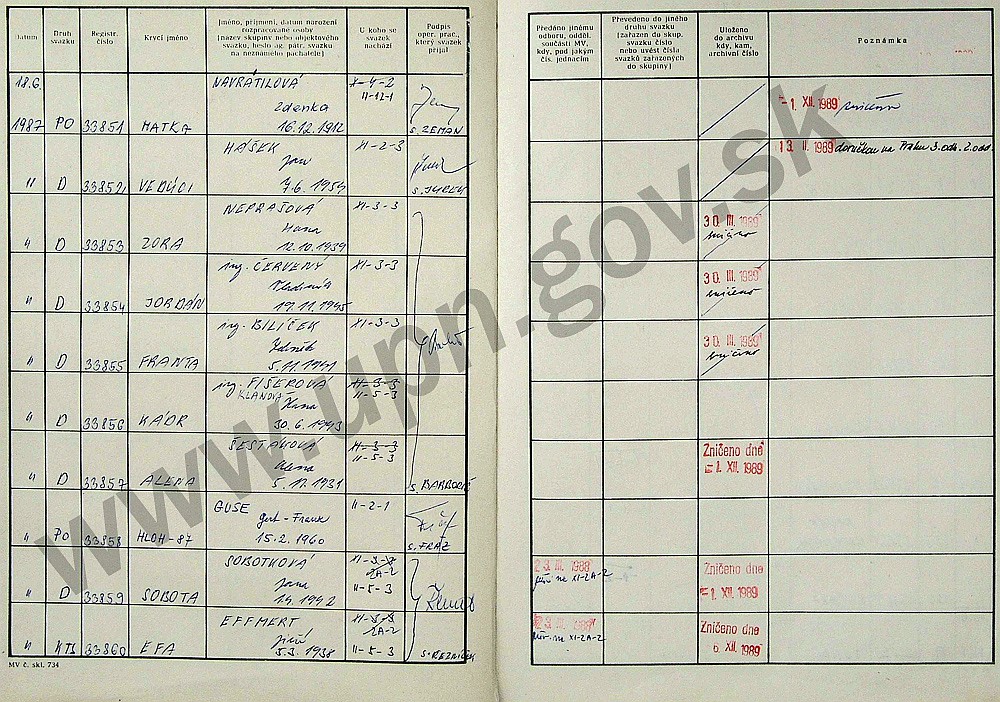 Datum
Druh
svazku
Registr.
číslo
Krycí jméno
Jméno, příjmení, datum narození
rozpracované osoby
[název skupiny nebo objektového
svazku, heslo ag. pátr. svazku
na neznámého pachatele]
U koho se
svazek
nachází
Podpis
oper. prac.,
který svazek
přijal
Předáno jinému
odboru, odděl.
součásti MV,
kdy, pod jakým
čís. jednacím
Převedeno do jiného
druhu svazku
[zařazen do skup.
svazku číslo
nebo uvést čísla
svazků zařazených
do skupiny]
Uloženo
do archivu
kdy, kam,
archivní číslo
Poznámka
18.6.
1987 PO 33851 MATKA
NAVRÁTILOVÁ
Zdenka
16.12.1912
X-4-2
11-12-1
s. ZEMAN
-1. XII. 1989 zničeno
" D 33852 VEDÚCI
HÁŠEK
Jan
7.6.1954
XI-2-3
s. JUREK
13. II. 1989
na Prahu 3. odb. 2. odd.
" D 33853 ZORA
NEPRAŠOVÁ
Hana
12.10.1939
XI-3-3
30. III. 1989
zničeno
" D 33854 JORDÁN
ing. ČERVENÝ
Vladimír
19.11.1945
XI-3-3
30. III. 1989
zničeno
" D 33855 FRANTA
ing. BILÍČEK
Zdeněk
5.11.1941
XI-3-3
30. III. 1989
zničeno
" D 33856 KÁDR
ing. FIŠEROVÁ
KLANOVÁ
Hana
30.6.1943
XI-3-3
11-5-3
" D 33857 ALENA
ŠESTÁKOVÁ
Alena
5.11.1931
XI-3-3
11-5-3
s. BARBORIČ
Zničeno dne
-1. XII. 1989
" PO 33858 HLOH-87
GUSE
Gert-Frank
15.2.1960
11-2-1
s. FRÁZ
" D 33859 SOBOTA
SOBOTKOVÁ
Jana
1.4.1942
2A-2
11-5-3
23. III. 1988
XI-2A-2
Zničeno dne
-1. XII. 1989
" KTS 33860 EFA
EFFMERT
Jiří
5.3.1938
XI-3-3
2A-2
11-5-3
s. ŘEZNÍČEK
23. III. 1988
XI-2A-2
Zničeno dne
6. XII. 1989
MV č. skl. 734
www.upn.gov.sk